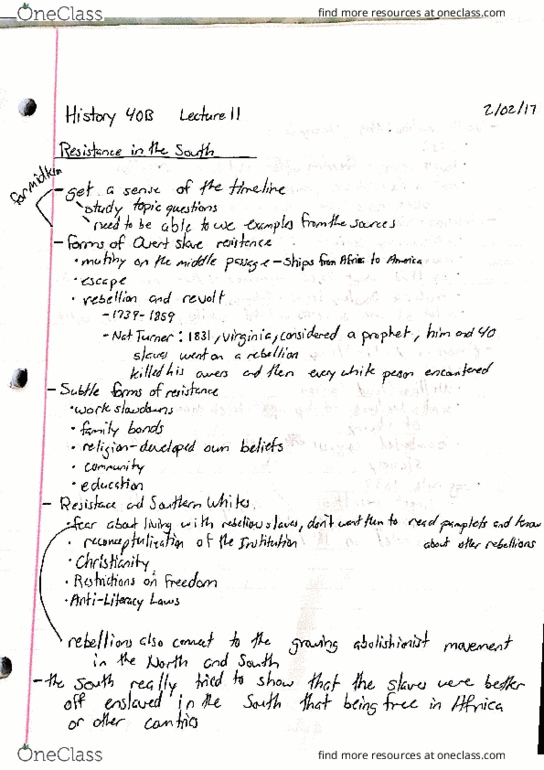 OneClass
find more resources at oneclass.com
History 40B Lecture 11
2/02/17
Resistance in the South
for midterm
- get a sense of the timeline
study topic questions
need to be able to use examples from the sources
- forms of Overt slave resistence
• mutiny on the middle passage - ships from Africa to America
• escape
• rebellion and revolt
- 1739-1859
- Nat Turner: 1831, Virginia, considered a prophet, him and 40
slaves went on a rebellion
killed his owers and then every white peson encontered
- Subtle forms of resistance
• work slowdowns
• family bonds
• religion - developed own beliefs
• community
• education
- Resistace and Southern Whites
• fear about living with rebelious slaves, don't want them to read pamplets and know
about other rebellions
• reconceptulization of the Institution
• Christianity
• Restrictions on Freedom
• Anti-Literacy Laws
rebellions also connect to the growing abolishionist movement
in the North and South
- the South really tried to show that the slaves were better
off enslaved in the South that being free in Africa
or other contries
OneClass
find more resources at oneclass.com